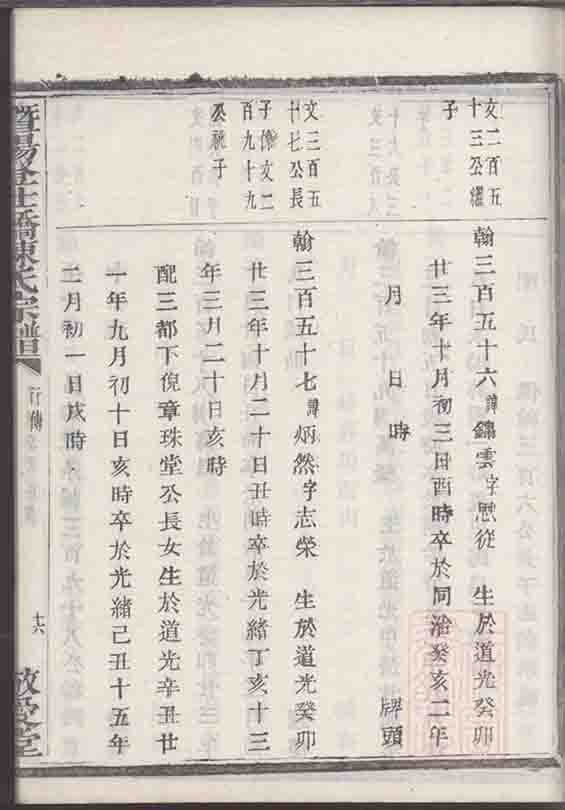 文二百五
十三公繼
子
翰三百五十六諱錦雲字思從 生於道光癸卯
廿三年十月初三日酉時卒於同治癸亥二年
月 日 時 牌頭
文三百五
十七公長
子像文二
百九十九
公祧子
翰三百五十七諱炳然字志榮 生於道光癸卯
廿三年十月二十日丑時卒於光緒丁亥十三
年三月二十日亥時
配三都下倪章珠堂公長女生於道光辛丑廿
一年九月初十日亥時卒於光緒己丑十五年
二月初一日戌時
暨陽
橋陳氏宗譜
行傳
十六
敬愛堂